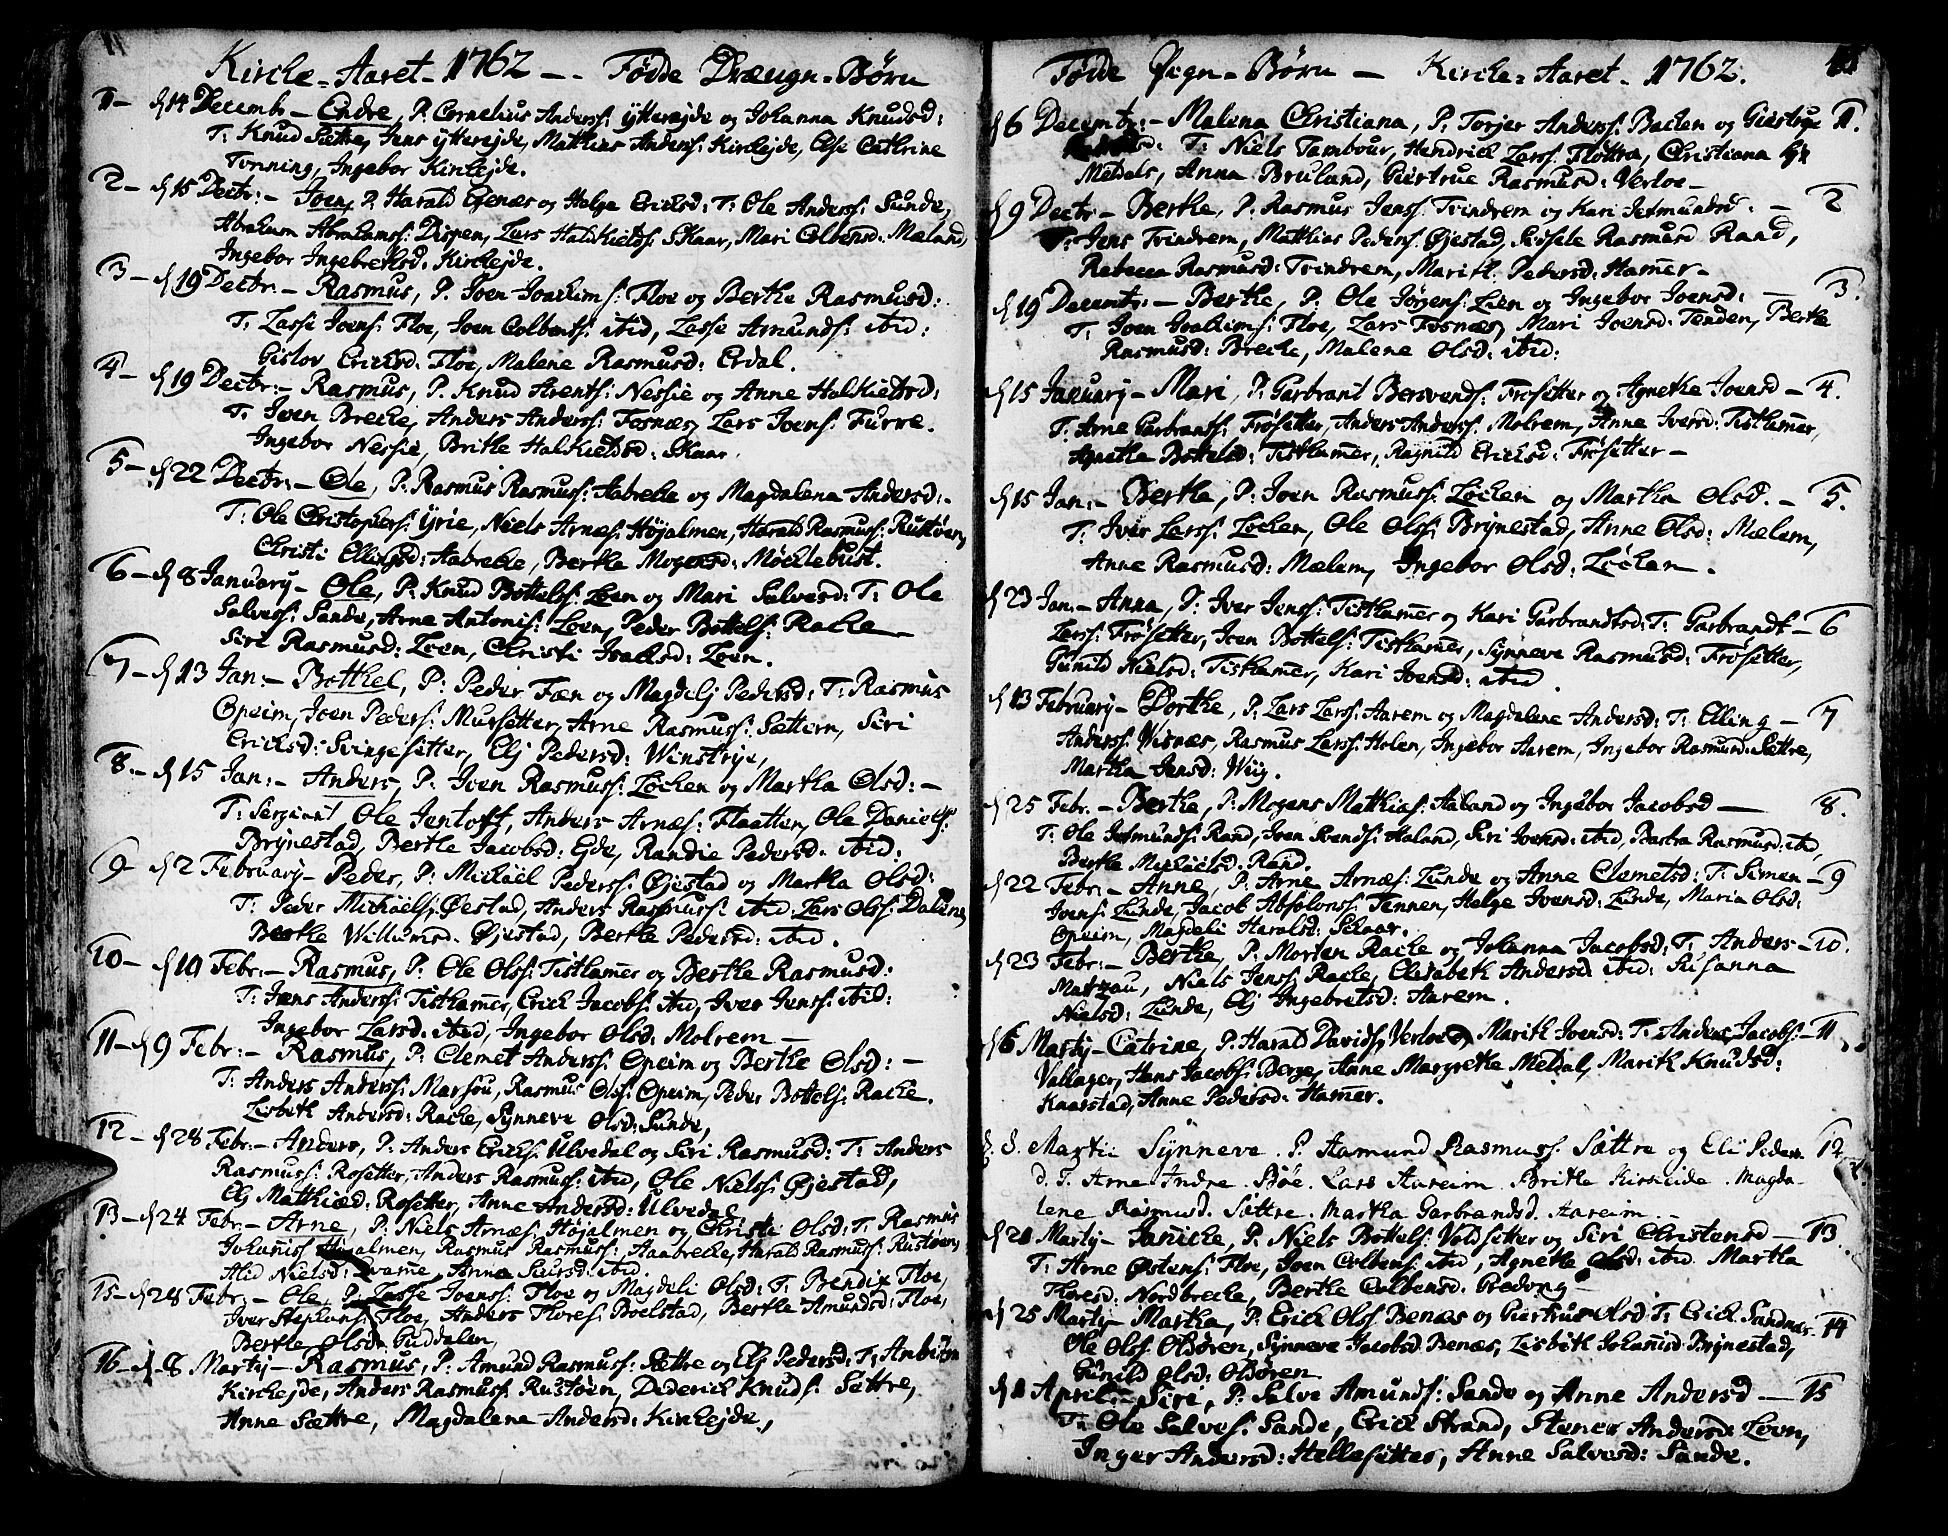 Kirche-Aaret 1762 -- Fødde Dreugn-Børn
1- d 14 Decemb- Endre, P. Cornelius Anderss: ytterejde og Johanna Knudsd:
T: Knud Sættre, Jens ytterejde, Matthias Anderss: Kirchejde, Else Cathrine
Tonning, Ingebor Kirchejde.
2- d 15 Decbr:- Joen, P: Harald og Helge Ericksd: T: Ole Anderss: Sunde,
Abraham Abrahamss: Dispen, Lars Halckields: Skaar, Mari Colbensd. Mæland,
Ingebor Ingebretsd. Kirchejde.
3- d 19 Decbr.- Rasmus, P. Joen Joachims: Floe og Berthe Rasmusd:
T: Lasse Joens: Floe, Joen Colbents: ibid, Lasse Amunds: ibid:
Gislov Ericksd. Floe, Malene Rasmusd: Erdal.
4- d 19 Decbr:- Rasmus, P. Knud Arents: Nessie og Anne Halckieldsd:
T. Joen Breche, Anders Anderss: Fosnæs, Lars Joens: Furre.
Ingebor Nessie, Brithe Halckieldsd: Skaar.
5- d 22 Decbr:- Ole, P: Rasmus Rasmuss: Aabreche og Magdalena Andersd:-
T: Ole Christophers: Yrie, Niels Arnes: Højalmen, Harald Rasmuss: Rustøen,
Christi Ellingsd: Aabreche, Berthe Mogensd: Möchlebust.
6- d 8 January- Ole, P. Knud Bottels: Loen og Mari Salvesd: T: Ole
Salves: Sande, Arne Antonis: Loen, Peder Bottels: Rache
Siri Rasmusd: Loen, Christi Joachsd: Loen.
7- d 13 Jan:- Bothel, P: Peder Fæn og Magdelj Pedersd: T: Rasmus
Opeim, Joen Peders: Mursetter, Arne Rasmuss: Sættern, Siri
Ericksd: Svingesetter, Elj Pedersd: Winstrye,
8.- d 15 Jan:- Anders, P. Joen Rasmuss: Løchen og Martha Olsd:-
T: Sergiant Ole Jentoft, Anders Arnes: Flaatten, Ole Daniels:
Brynestad, Berthe Jacobsd: Ejde, Randie Pedersd: ibid:
9- d 2 February- Peder, P: Michael Peders: Øjestad og Martha Olsd:
T: Peder Michaels, Øjestad, Anders Rasmuss: ibid: Lars Olss: Dalene,
Berthe Willumsd. Øjestad, Berthe Pedersd: ibid.
10- d 10 Febr:- Rasmus, P: Ole Olss: Tisthamer og Berthe Rasmusd:
T: Jens Anderss: Tisthamer, Erick Jacobs: ibid, Iver Jenss: ibid:
Ingebor Larsd: ibid, Ingebor Olsd: Molrem-
11- d 9 Febr:- Rasmus, P: Clemet Anderss: Opeim og Berthe Olsd:-
T: Anders Anderss: Marsou, Rasmus Olss: Opeim, Peder Bottels: Rache.
Lisbeth Andersd: Rache, Synneve Olsd: Sunde,
12- d 28 Febr:- Anders, P: Anders Ericks: Ulvedal og Siri Rasmusd: T: Anders
Rasmuss: Rosetter, Anders Rasmuss: ibid, Ole Niels: Øjestad,
Elj Matthisd: Rosetter, Anne Andersd: Ulvedal
13- d 24 Febr:- Arne, P: Niels Arnes: Højalmen og Christi Olsd: T: Rasmus
Johanis: Højalmen, Rasmus Rasmuss: Aabreche, Harald Rasmuss: Rustøen,
Alid Nielsd: Anna Siursd: ibid.
15- d 28 Febr:- Ole, P. Lasse Joens: Floe og Magdeli Olsd: T: Bendix Floe,
Iver Stephans: Floe, Anders Thores: Boelstad, Berthe Amundsd: Floe,
Berthe Olsd: Guddalen,
16- d 8 Martij- Rasmus, P: Amund Rasmuss: Sættre og Elj Pedersd: T:
Kirchejde, Anders Rasmuss: Rustøen, Dederich Knuds: Sættre,
Anne Sættre, Magdalene Andersd: Kirchejde,
Fødde Pign-Børn - Kirche-Aaret- 1762.
d 6 Decembr:- Malena Christiana, P. Torjer Anderss: Bachen og Giertrue 1.
T: Niels Tambour, Hendrick Larss: Flottra, Christiana
Meldals, Anna Bruland, Giertrue Rasmusd: Verloe-
d 9 Decbr- Berthe, P. Rasmus Jenss: Tvindrem og Kari Jetmundsd:- 2
T: Jens Tvindrem, Matthias Peders: Øjestad, Sidsele Rasmusd Rand,
Rebecca Rasmusd: Tvindrem, Marith Pedersd: Hamer-
d 19 Decembr:- Berthe, P. Ole Jørgens: Lien og Ingebor Joensd:- 3.
T: Joen Joachims: Floe, Lars Fosnæs, Mari Joensd: Tenden, Berthe
Rasmusd: Breche, Malene Olsd: ibid:
d 15 January- Mari, P: Garbrant Bersvends: Frøsetter og Agnethe Joensd- 4.
T: Arne Garbrants: Frøsetter, Anders Anderss: Molrem, Anne Iversd: Tisthamer,
Agnethe Bottelsd: Tisthamer, Ragnild Ericksd: Frøsetter-
d 15 Jan:- Berthe, P: Joen Rasmuss: Løchen og Martha Olsd.- 5.
T: Iver Larss: Løchen, Ole Olss: Brynestad, Anne Olsd: Mælem,
Anne Rasmusd: Mælem, Ingebor Olsd: Løchen.
d 23 Jan:- Anna, P: Iver Jenss: Tisthamer og Kari Garbrandtsd: T: Garbrandt- 6
Larss: Frøsetter, Joen Bottels: Tisthamer, Synneve Rasmusd: Frøsetter,
Gunild Nielsd: Tisthamer, Kari Joensd: ibid.
d 13 February- Dorthe, P. Lars Larss: Aarem og Magdalene Andersd: T: Elling- 7
Anderss: Wisnæs, Rasmus Larss: Holen, Ingebor Aarem, Ingebor Rasmusd: Sættre,
Martha Jensd: Wiig.
d 25 Febr.- Berthe, P: Mogens Matthias: Aaland og Ingebor Jacobsd- 8.
T: Ole Jetmunds: Rand, Joen Svends: Aaland, Siri Joensd: ibid, Rasmusd: ibid,
Berthe Michaelsd: Rand.
d 22 Febr:- Anne, P: Arne Arnes: Lunde og Anne Clemetsd: T: Simen- 9
Joens: Lunde, Jacob Absolons: Tennen, Helge Joensd: Lunde, Maria Olsd:
Opeim, Magdeli Haralsd: Schaar.
d 23 Febr:- Berthe, P: Morten Rache og Johanna Jacobsd: T: Anders- 10.
Marzau, Niels Jenss: Rache, Elisabeth Andersd ibid: Susanna
Nielsd: Lunde, Elj Ingebretsd: Aarem.
d 6 Martij- Catrine, P: Harald Davids, Verloe og Marith Joensd: T: Anders Jacobs:- 11
Vallager, Hans Jacobs: Berge, Anne Margrethe Meldal, Marith Knudsd:
Knarstad, Anne Pedersd: Hamer.
d. 8. Martii Synneve. P. Aamund Rasmuss. Sættre og Eli Peders 12
d. T. Arne Andre. Bøe. Lars Aareim. Brithe Kirkeide. Magda-
lene Rasmusd. Sættre. Martha Garbrandsd. Aareim.-
d 21 Martij- Janiche, P: Niels Bottels: Voldsetter og Siri Christensd- 13
T: Arne Østens: Floe, Joen Colbens: ibid, Agnethe Olsd: ibid Martha
Thoresd: Nordbreche, Berthe Colbensd. Bredvng-
d 25 Martij Martha, P: Erick Olss Benæs og Giertrue Olsd T: Erick Sandnæs. 14
Ole Olss Oldøren, Synneve Jacobsd: Benæs, Lisbeth Johanisd Brynestad,
Gunild Olsd: Oldøren
d 1 April:- Siri, P: Salve Amunds: Sande og Anne Andersd- 15
T: Ole Salves: Sande, Erick Strand, Stener Andersd: Loen,
Inger Andersd: Hellesetter, Anne Salvesd: Sande.